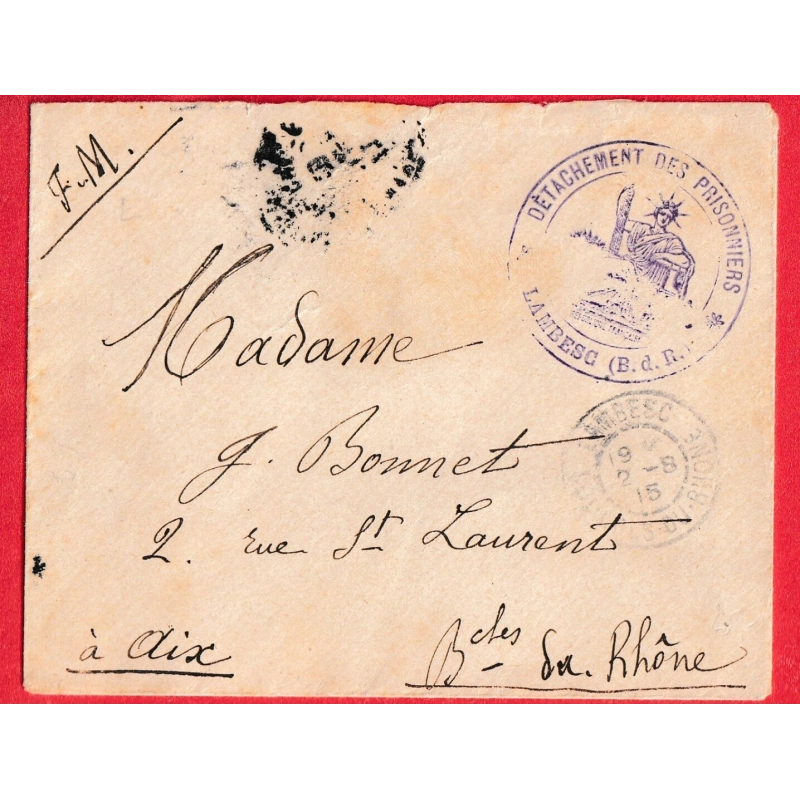 F.M.
DÉTACHEMENT DES PRISONNIERS
LAMBESC (B. d. R.)
Madame
J. Bonnet
2. rue St Laurent
à Aix
Bches du Rhône
LAMBESC
19 -8
2 15
RHÔNE